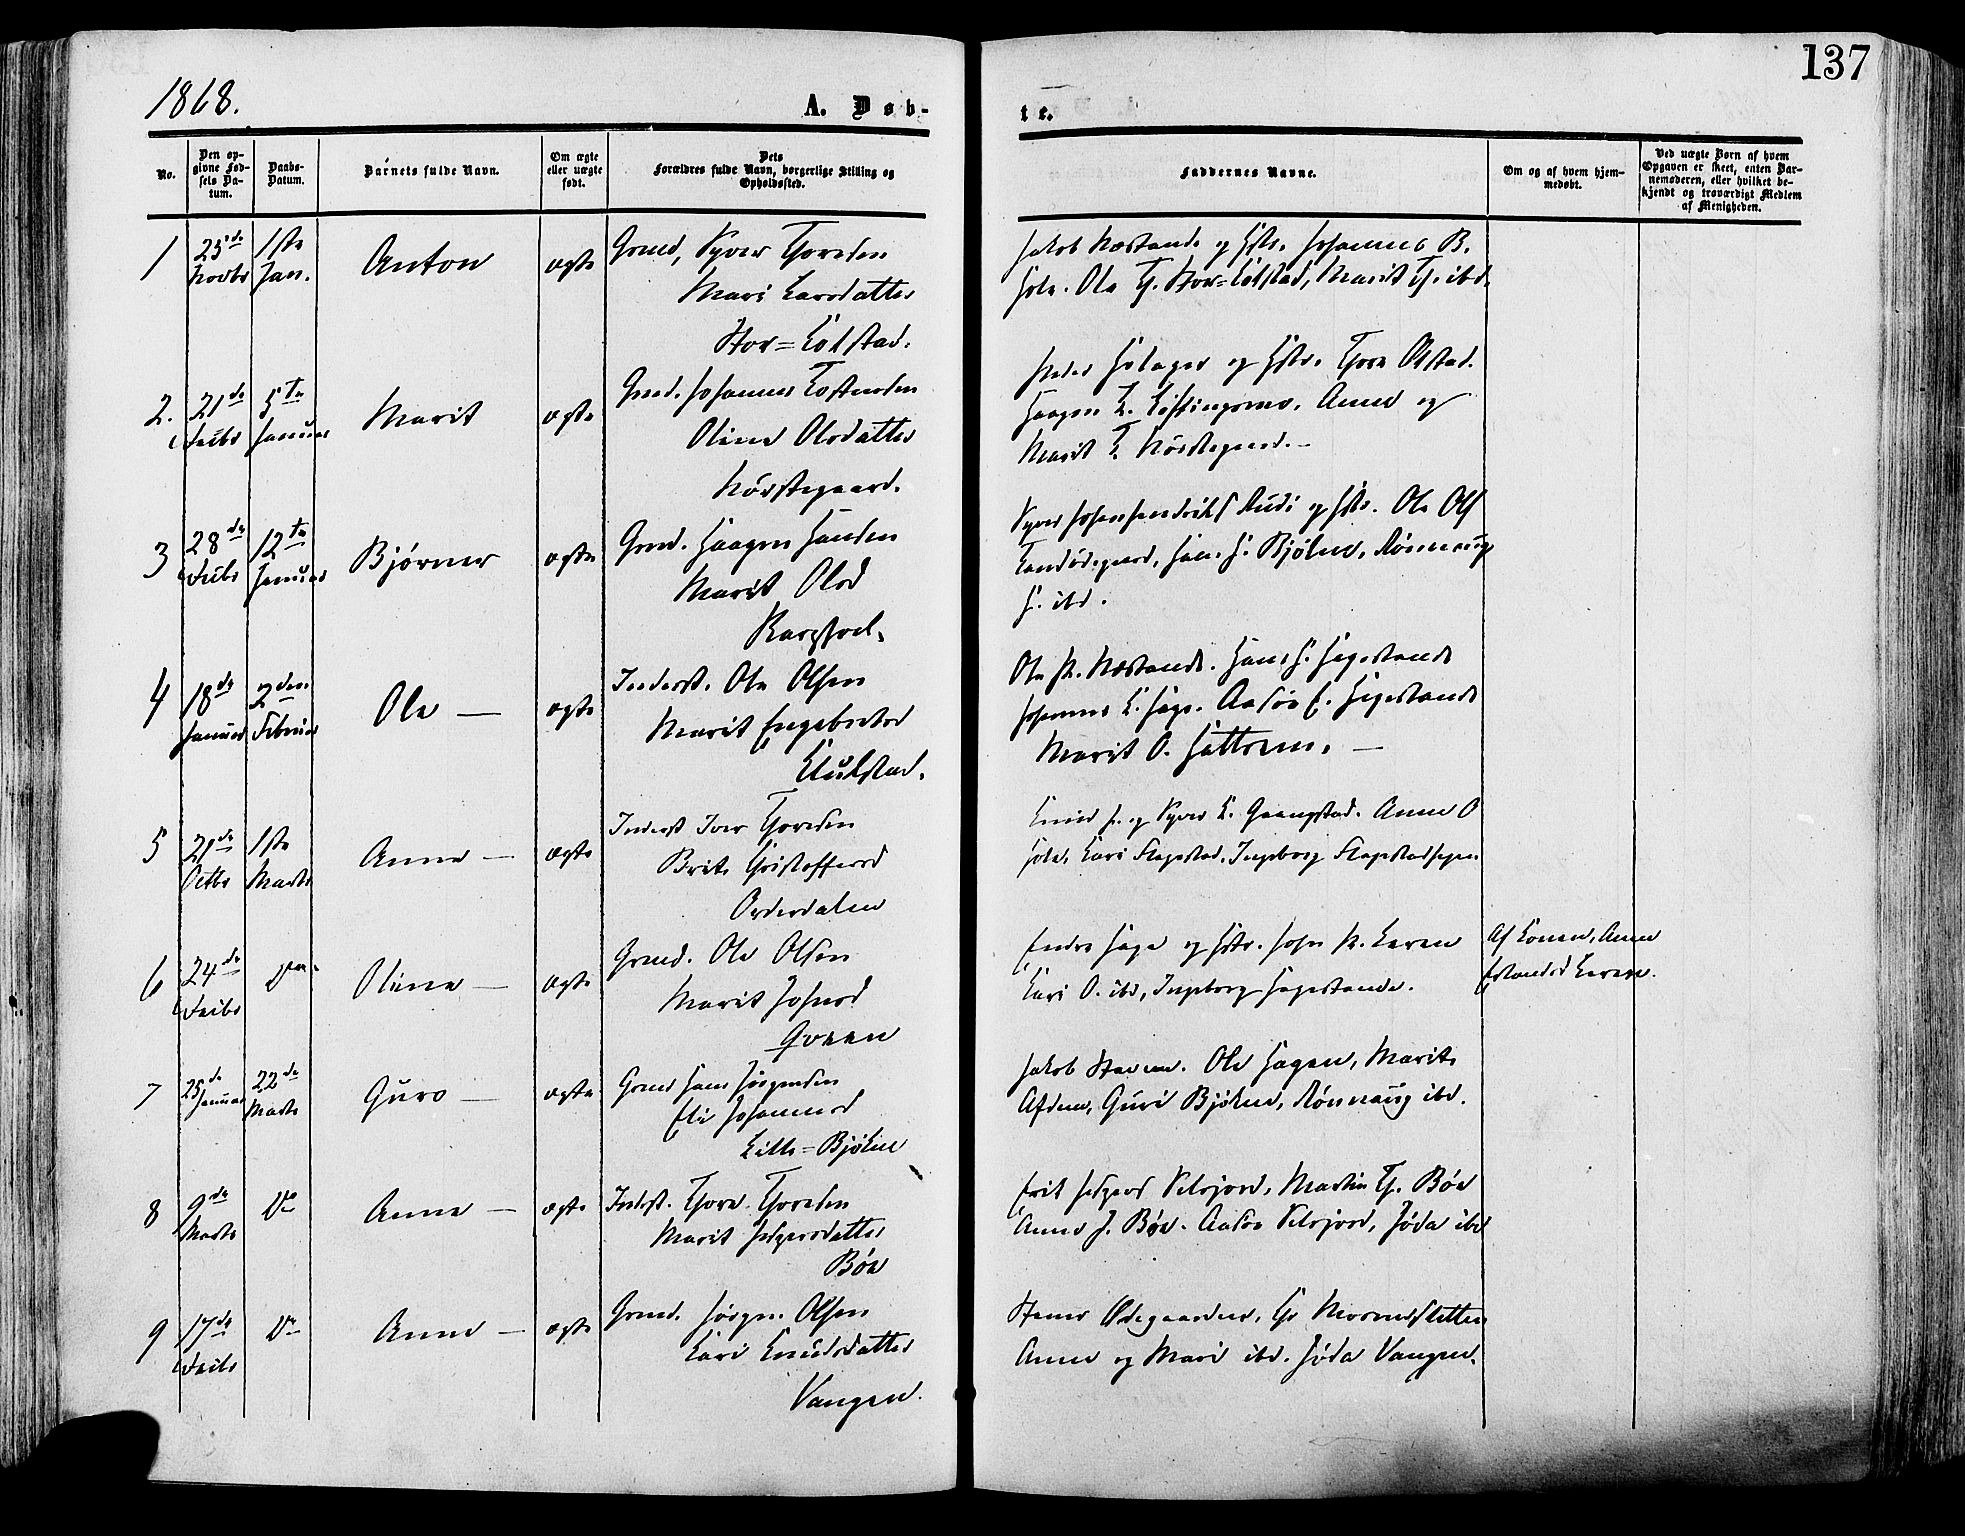 137
1868.
A. Døb-
te.
No.
Den op-
givne Fød-
sels Da-
tum.
Daabs-
Datum.
Barnets fulde Navn.
Om ægte
eller uægte
født.
Dets
Forældres fulde Navn, borgerlige Stilling og
Opholdssted.
Faddernes Navne.
Om og af hvem hjem-
medøbt.
Ved uægte Børn af hvem
Opgaven er skeet, enten Bar-
nemoderen, eller hvilket be-
kjendt og troværdigt Medlem
af Menigheden.
1 25de Novbr 1ste Jan. Anton ægte
Grmd, Syver Thoresen
Mari Larsdatter
Stor=Kolstad.
Jakob Næstande og Hstr. Johannes B.
Hole. Ole Th. Stor=Kolstad, Marit Th. ibd.
2. 21de Decbr 5te Januar Marit ægte
Grmd. Johannes Tostensen
Oline Olsdatter
Nørstegaard.
Peder Solager og Hstr. Thore Olstad.
Haagen T. Anne og
Marit T. Nørstegaard. -
3 28de Decbr 12te Januar Bjørner ægte
Grmd. Haagen Hansen
Marit Olsd
Syver Johanhendriks Rudi og Hstr. Ole Ols
Hans H. Bjølien, Rønnaug
H. ibd.
4 18de Januar 2den Februar Ole - ægte
Inderst. Ole Olsen
Marit Engebretsd
Klukstad.
Ole P. Næstande. Hans H. Hagestande
Johannes K. Hage. Aasøe E. Hagestande
Marit O. Hattrem. -
5 21de Octbr 1ste Marts Anne - ægte
Inderst Iver Thoresen
Brit Christoffersd
Odderdalen
Knud J. og Syver K. Graupstad. Anne O
Hole, Kari Flagestad, Ingeborg Flagestadhagen.
6 24de Decbr Do. Oline - ægte
Grmd. Ole Olsen
Marit Johnsd
Qveen
Endre Hage og Hstr. John P. Kveen
Kari O. ibd, Ingeborg Hagestande.
Af Konen, Anne
Erlandsd Kveen.
7 25de Januar 22de Marts Guro - ægte
Grmd Hans Jørgensen
Eli Johannesd
Lille=Bjølien
Jakob Ole Hagen, Marit
Guri Bjølien, Rønnaug ibd.
8 9de Marts Do Anne - ægte
Indst. Thore Thoresen
Marit Jespersdatter
Bøe
Erik Jespers Selsjord, Martin Th. Bøe
Anne J. Bøe. Aasøe Selsjord, Jøda ibd
9 17de Decbr Do Anne - ægte
Grmd. Jørgen Olsen
Kari Knudsdatter
Vangen.
Hans Ødegaarden,
Anne og Mari ibd. Jøda Vangen.